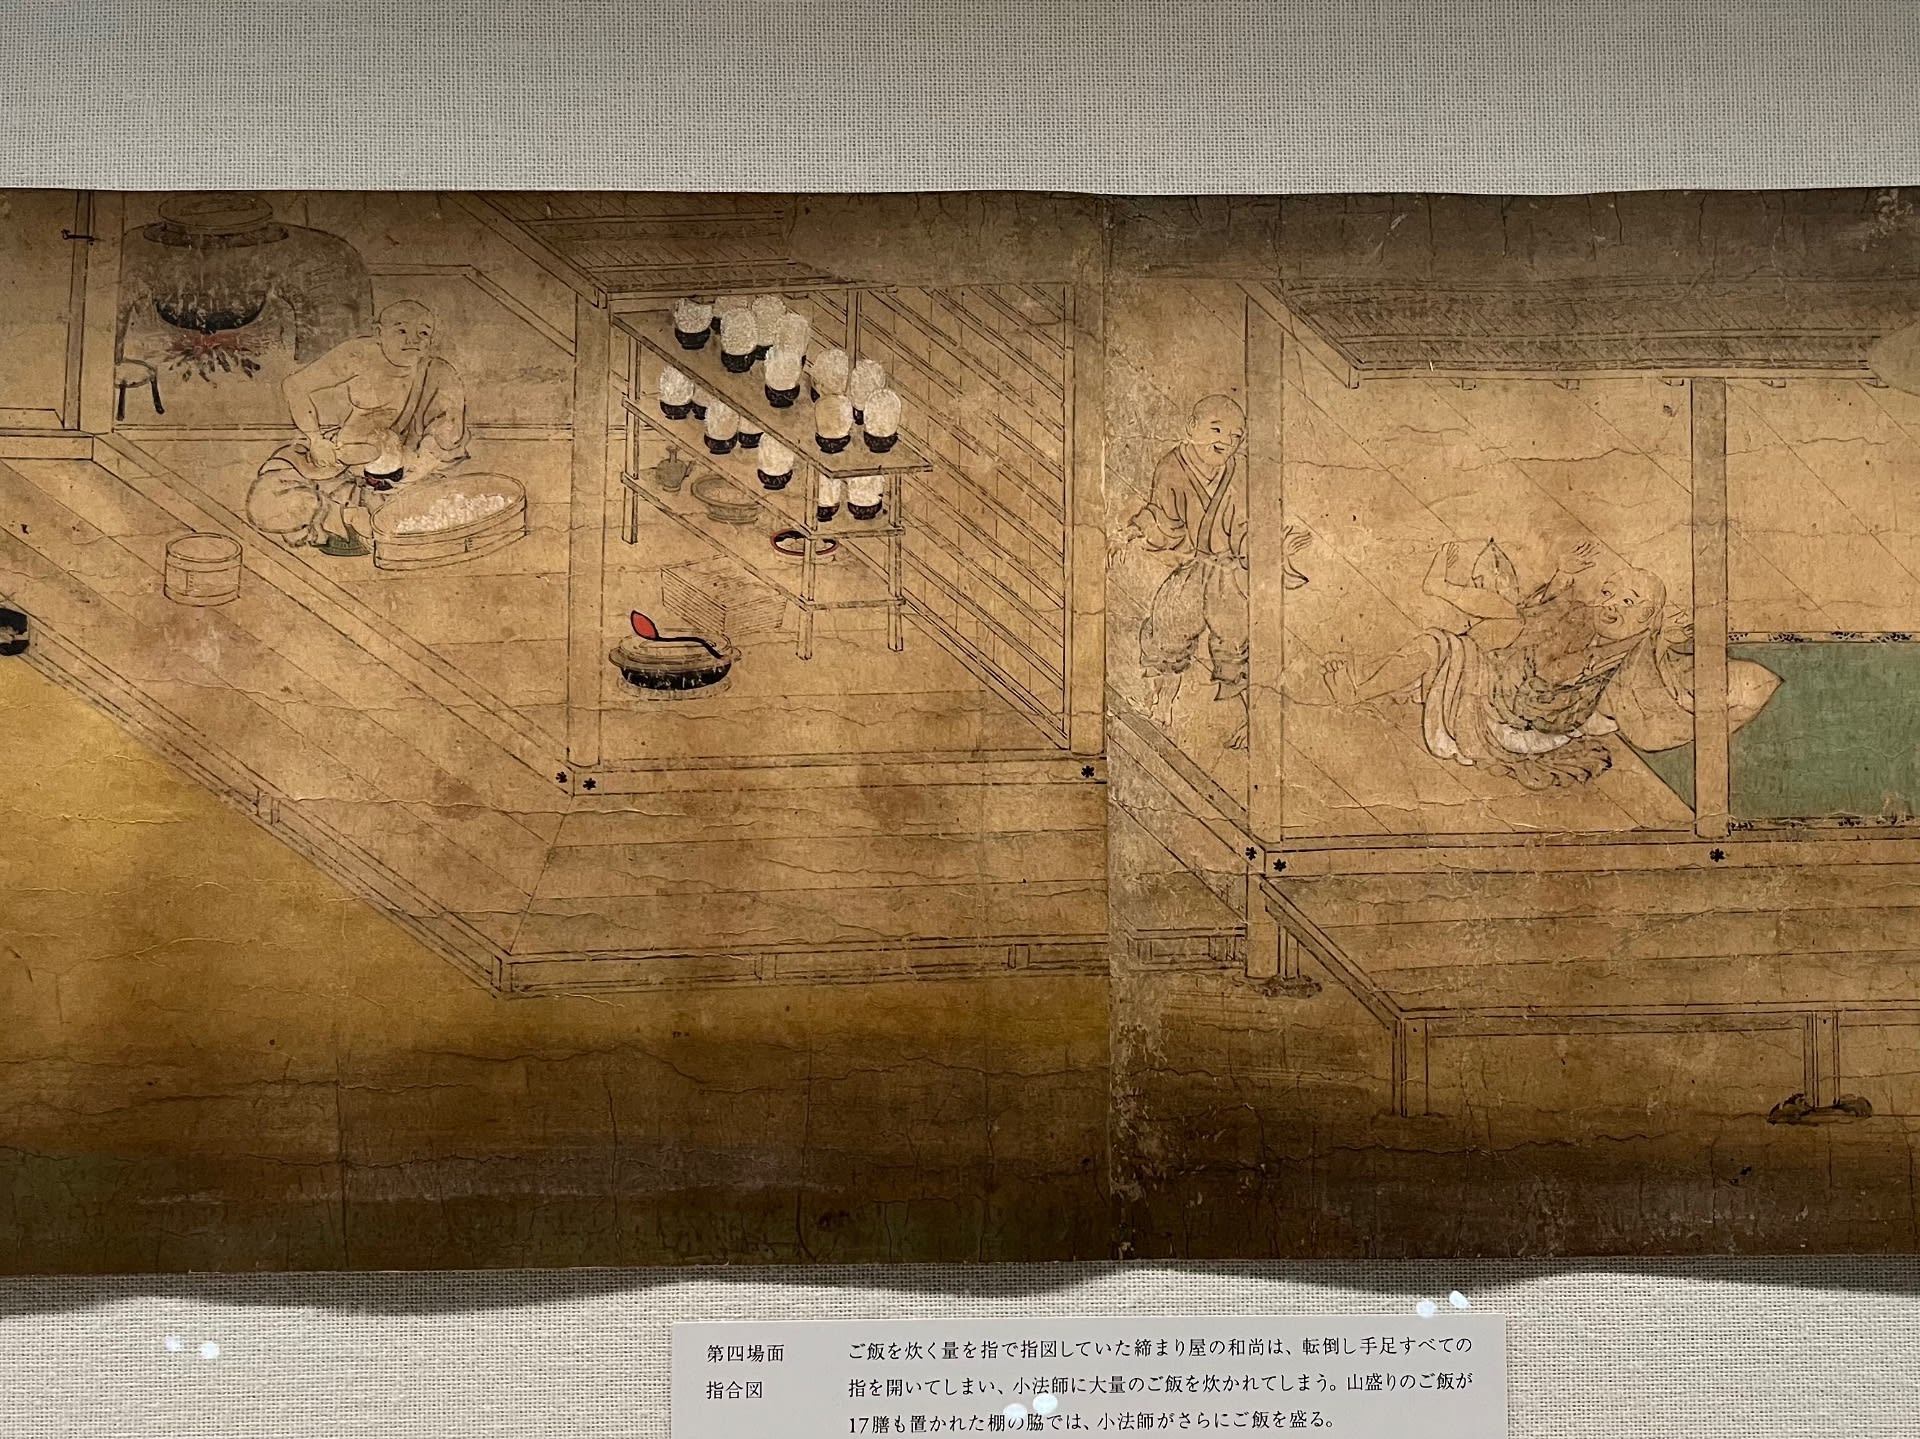 第四場面
指合図
ご飯を炊く量を指で指図していた締まり屋の和尚は、転倒し手足すべての
指を開いてしまい、小法師に大量のご飯を炊かれてしまう。山盛りのご飯が
17膳も置かれた棚の脇では、小法師がさらにご飯を盛る。